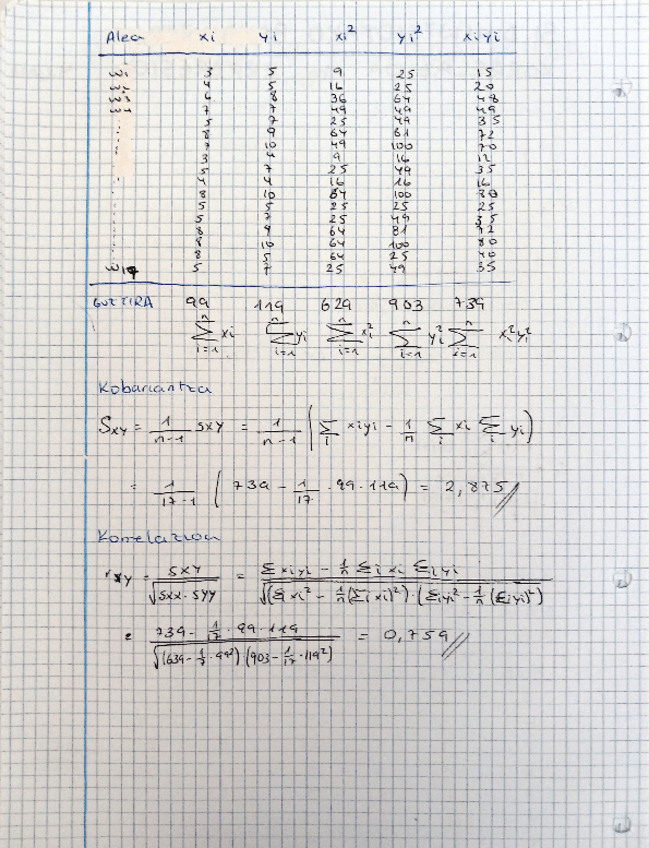 Alea xi yi xi² yi² xiyi
w1 3 5 9 25 15
4 5 16 25 20
6 8 36 64 48
7 7 49 49 49
5 7 25 49 35
8 9 64 81 72
7 10 49 100 70
3 4 9 16 12
5 7 25 49 35
4 4 16 16 16
8 10 64 100 80
5 5 25 25 25
5 7 25 49 35
8 9 64 81 72
8 10 64 100 80
8 5 64 25 40
w17 5 7 25 49 35
GUZTIRA 99 119 629 903 739
n∑i=1 xi n∑i=1 yi n∑i=1 xi² n∑i=1 yi² n∑i=1 xi²yi²
Kobariantza
Sxy = 1/(n-1) sxy = 1/(n-1) (∑i xiyi - 1/n ∑i xi ∑i yi)
= 1/(17-1) (739 - 1/17 · 99 · 119) = 2,875//
Korrelazioa
rxy = sxy/√(sxx · syy) = (∑ xiyi - 1/n ∑i xi ∑i yi)/√((∑i xi² - 1/n (∑i xi)²) · (∑i yi² - 1/n (∑i yi)²))
= (739 - 1/17 · 99 · 119)/√((639 - 1/7 · 99²)(903 - 1/17 · 119²)) = 0,759//